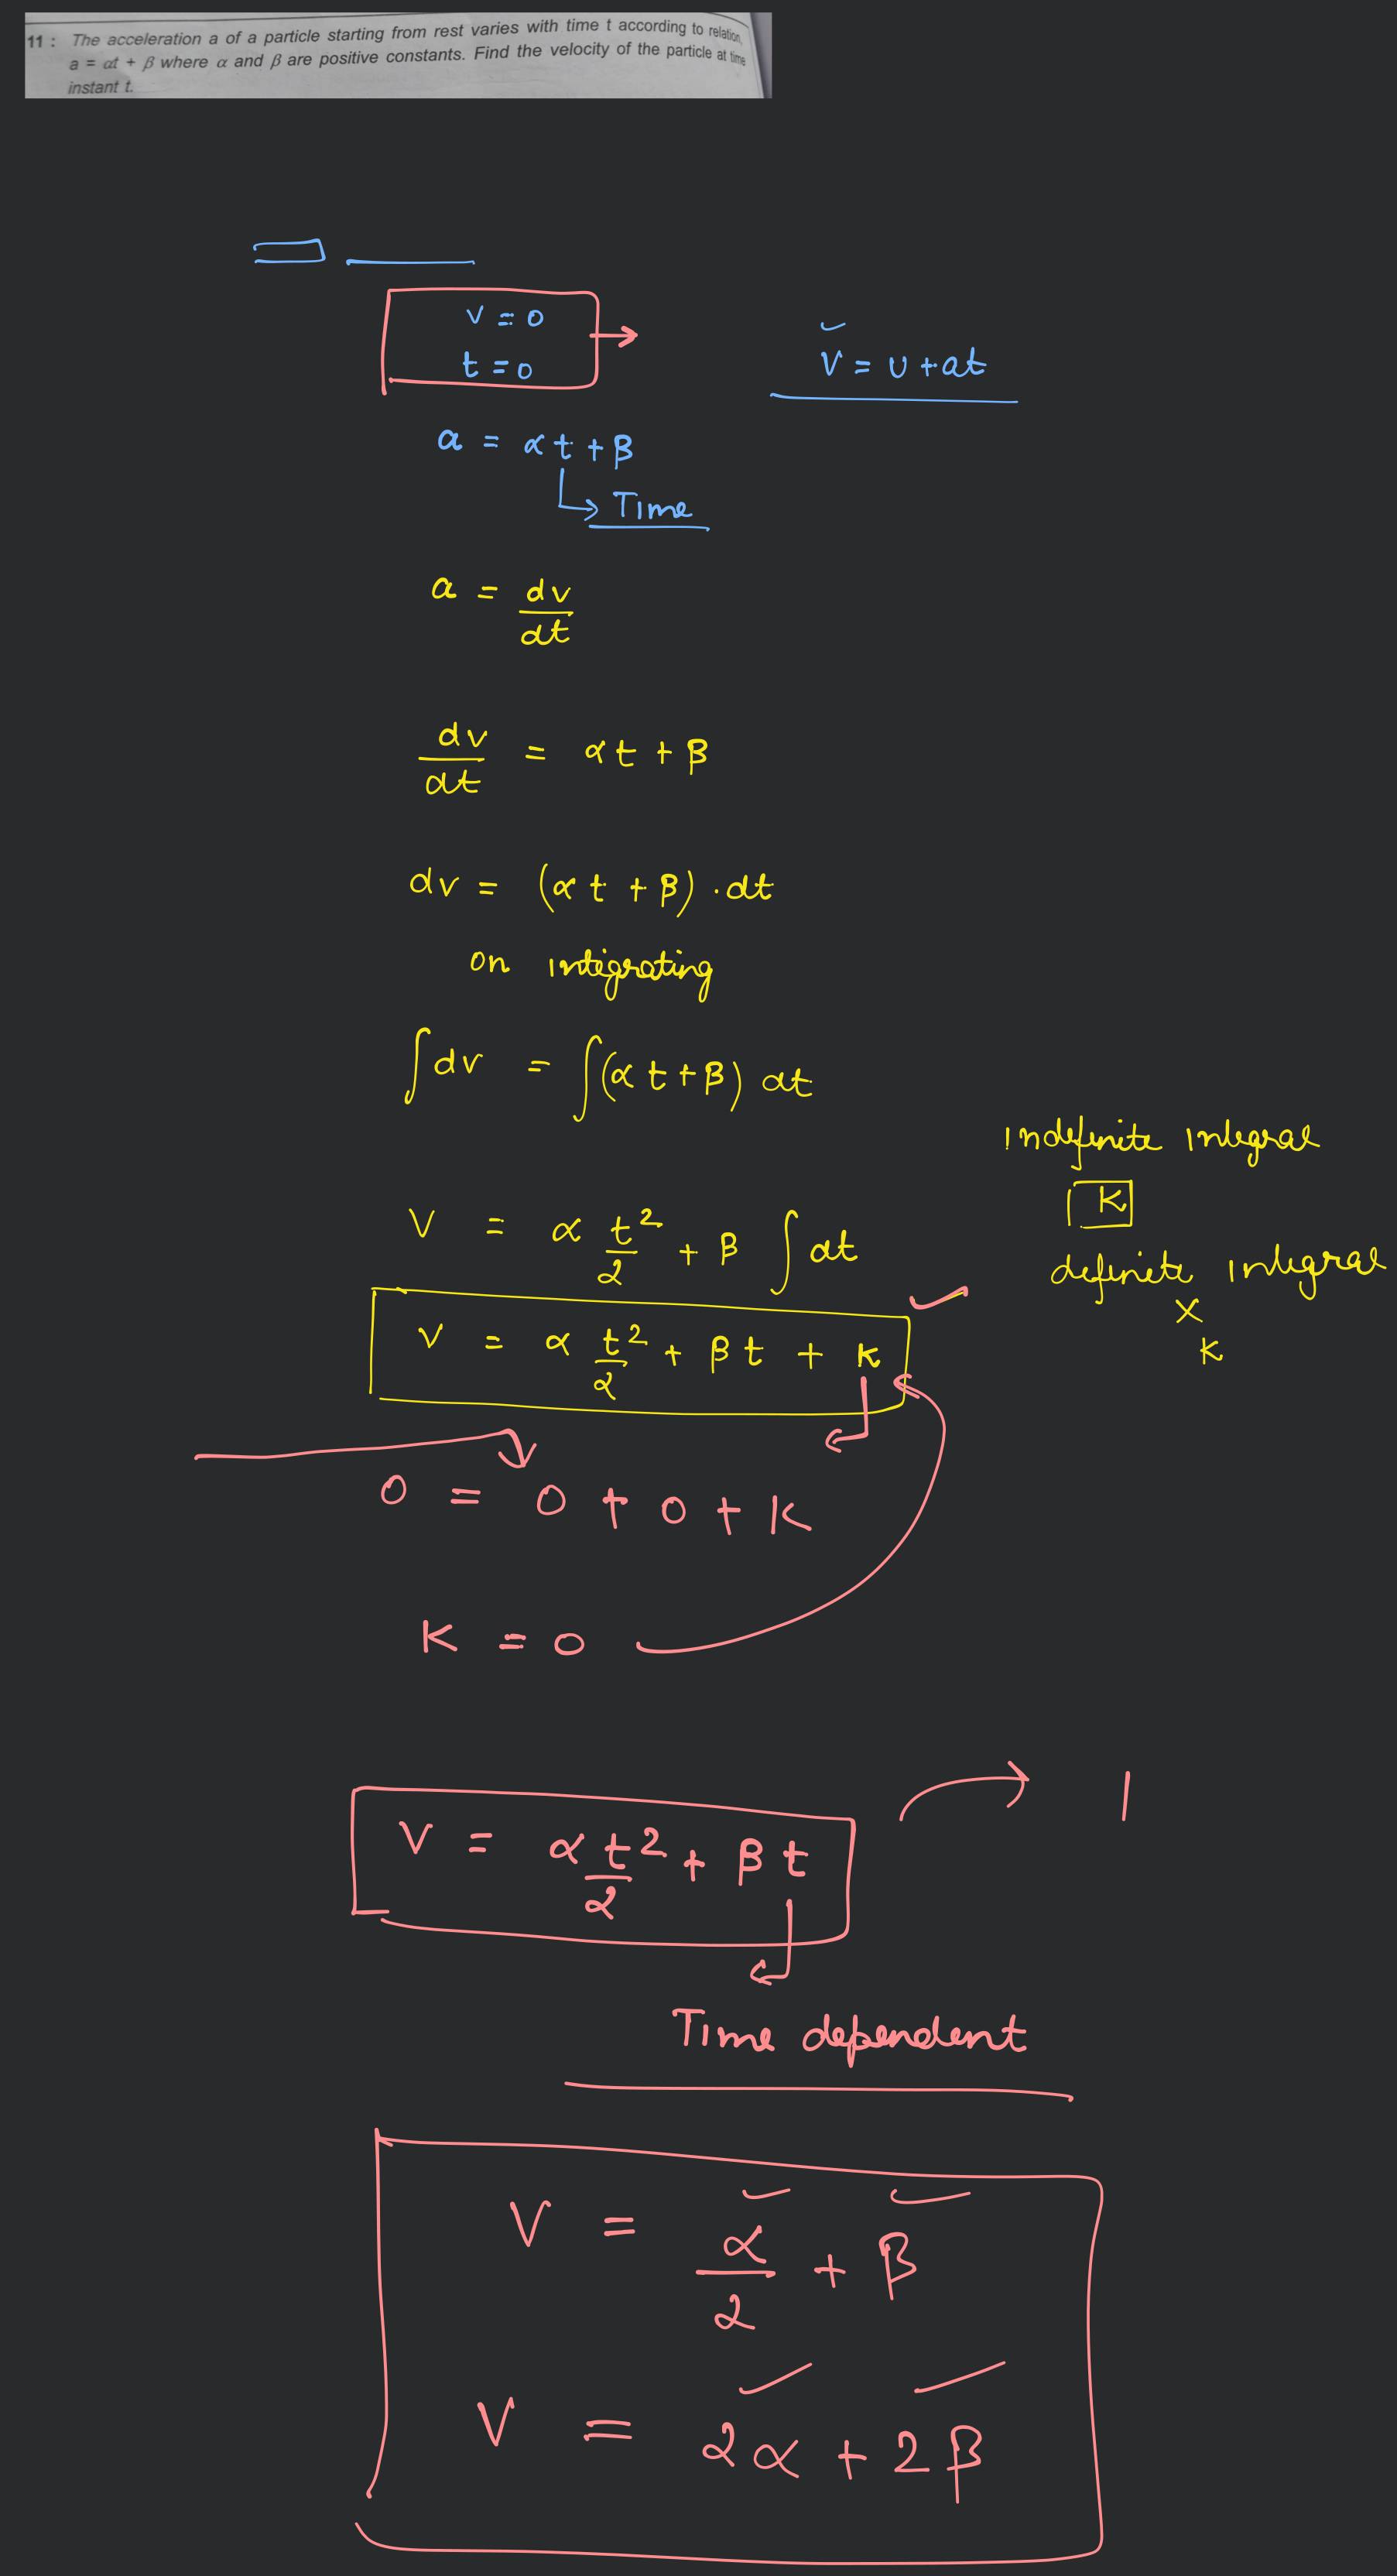 11 : The acceleration a of a particle starting from rest varies with time t according to relation,
a = αt + β where α and β are positive constants. Find the velocity of the particle at time
instant t.
v = 0
t = 0
v = u + at
a = αt + β
Time
a = dv/dt
dv/dt = αt + β
dv = (αt + β) . dt
on integrating
∫dv = ∫(αt + β) dt
indefinite integral
K
v = α t²/2 + β ∫dt
definite integral
X
K
v = α t²/2 + βt + K
0 = 0 + 0 + K
K = 0
v = α t²/2 + βt
1
Time dependent
V = α/2 + β
V = 2α + 2β